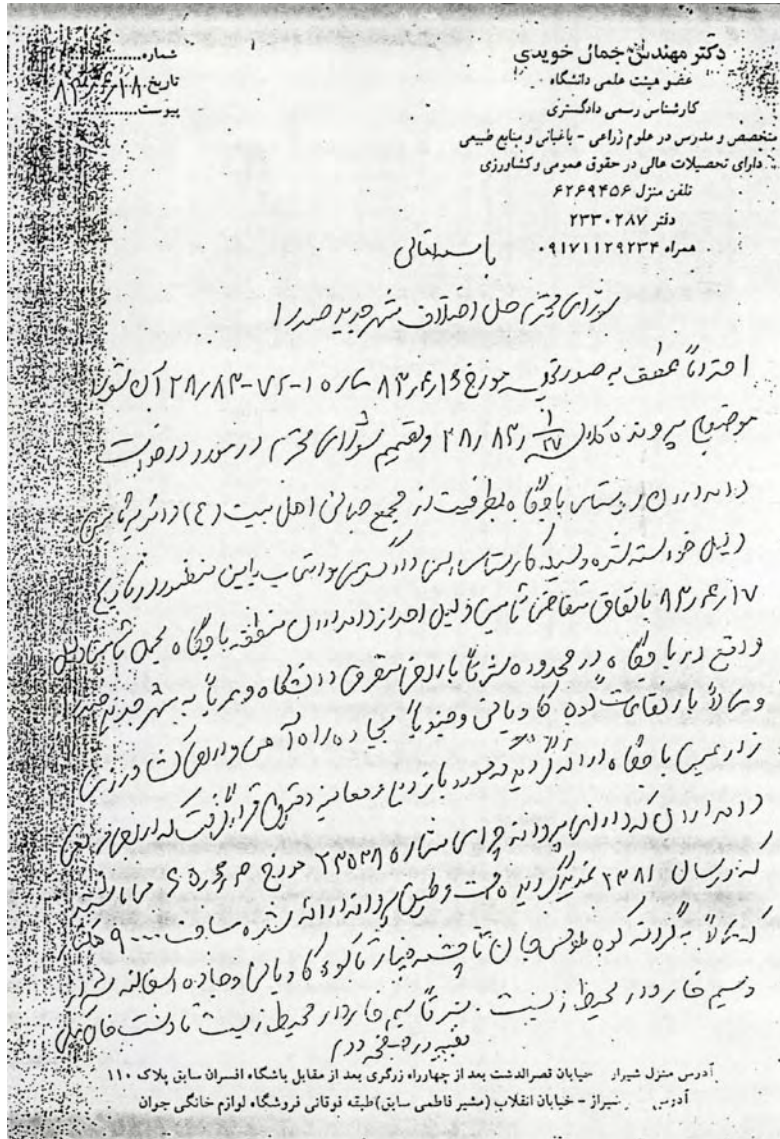 دکتر مهندس جمال خویدی
عضو هیئت علمی دانشگاه
کارشناس رسمی دادگستری
متخصص و مدرس در علوم زراعی - باغبانی و منابع طبیعی
دارای تحصیلات عالی در حقوق عمومی و کشاورزی
تلفن منزل ۶۲۶۹۴۵۶
دفتر ۲۳۳۰۲۸۷
همراه ۰۹۱۷۱۱۲۹۲۳۴
شماره
تاریخ ۸۳/۶/۱۸
پیوست
باسمه تعالی
شورای محترم حل اختلاف شهر جدید صدرا
احتراماً عطف به صورتجلسه مورخ ۸۳/۶/۱۶ شماره ۱۰-۷۲-۲۸/۸۳ آن شورا
موضوع پرونده کلاسه ۲۸/۸۳/ و تصمیم شورای محترم در مورد درخواست
دامداران روستای باجگاه بطرفیت از مجمع جهانی اهل بیت (ع) دائر بر تامین
دلیل خواسته شده بوسیله کارشناس رسمی دادگستری با انتخاب باین منظور در تاریخ
۸۳/۶/۱۷ باتفاق متقاضی تامین دلیل احد از دامداران منطقه باجگاه محل تامین دلیل
واقع در باجگاه در محدوده شرقاً باراضی متفرقه دانشگاه و غرباً به شهر جدید صدرا
و شمالاً بارتفاعات کوه و جنوباً بجاده راه آهن و اراضی کشاورزی
زارعین باجگاه ارائه گردید مورد بازدید و معاینه دقیق قرار گرفت که اراضی مرتعی
دامداران که دارای پروانه چرای شماره ۲۳۵۳۸ مورخ می باشند
که در سال ۱۳۸۱ تمدید گردیده است و طبق پروانه ارائه شده مساحت ۹۰۰۰ هکتار
که شمالاً به گردنه کوه تا چشمه تا کوه و جاده آسفالته شیراز
و سیم خاردار محیط زیست . شرقاً سیم خاردار محیط زیست تا دشت
بقیه در صفحه دوم
آدرس منزل شیراز خیابان قصرالدشت بعد از چهارراه زرگری بعد از مقابل باشگاه افسران سابق پلاک ۱۱۰
آدرس شیراز - خیابان انقلاب (مشیر فاطمی سابق) طبقه فوقانی فروشگاه لوازم خانگی جوان